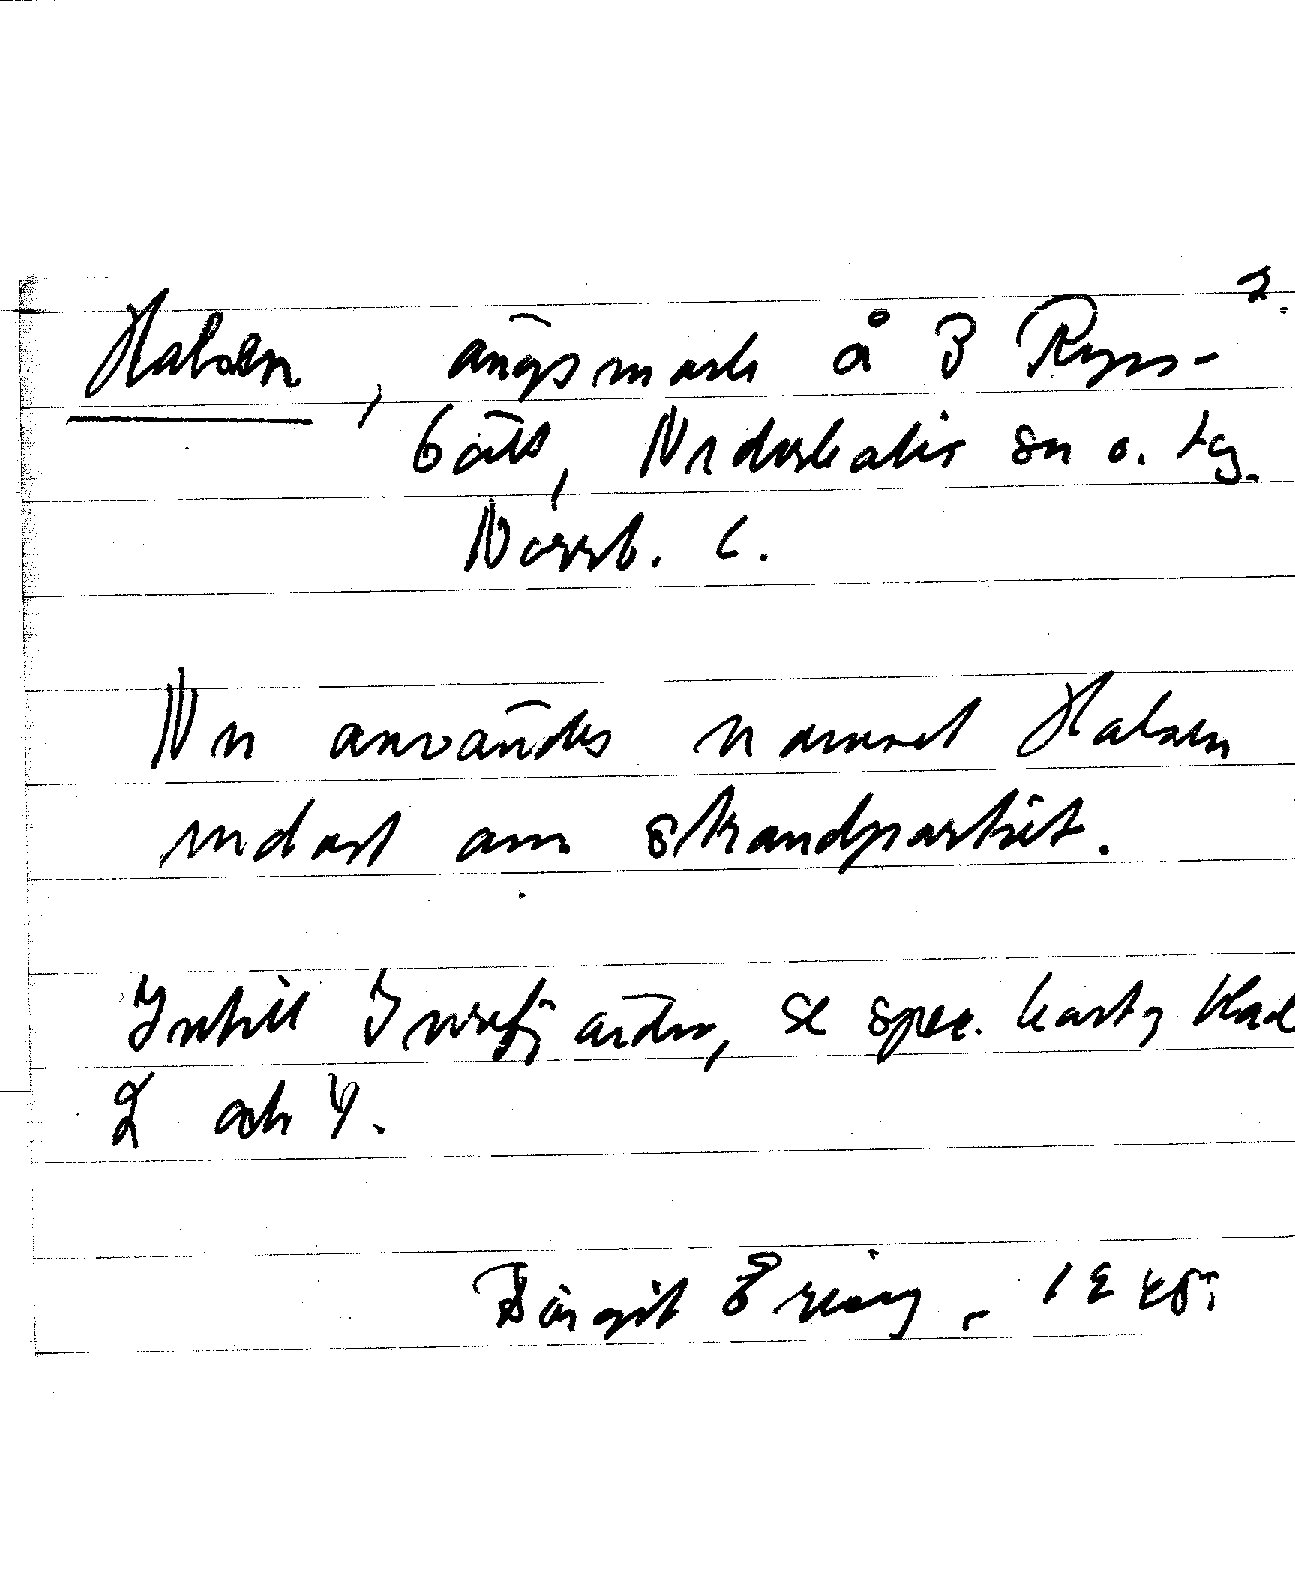 2.
Halsen, ängsmark å 3 Ryss-
bält, Nederkalix sn o. tg.
Norrb. l.
Nu användes namnet Halsen
endast om strandpartiet.
Intill Innerfjärden, se spec. karta, blad
2 och 4.
Birgit 1945.